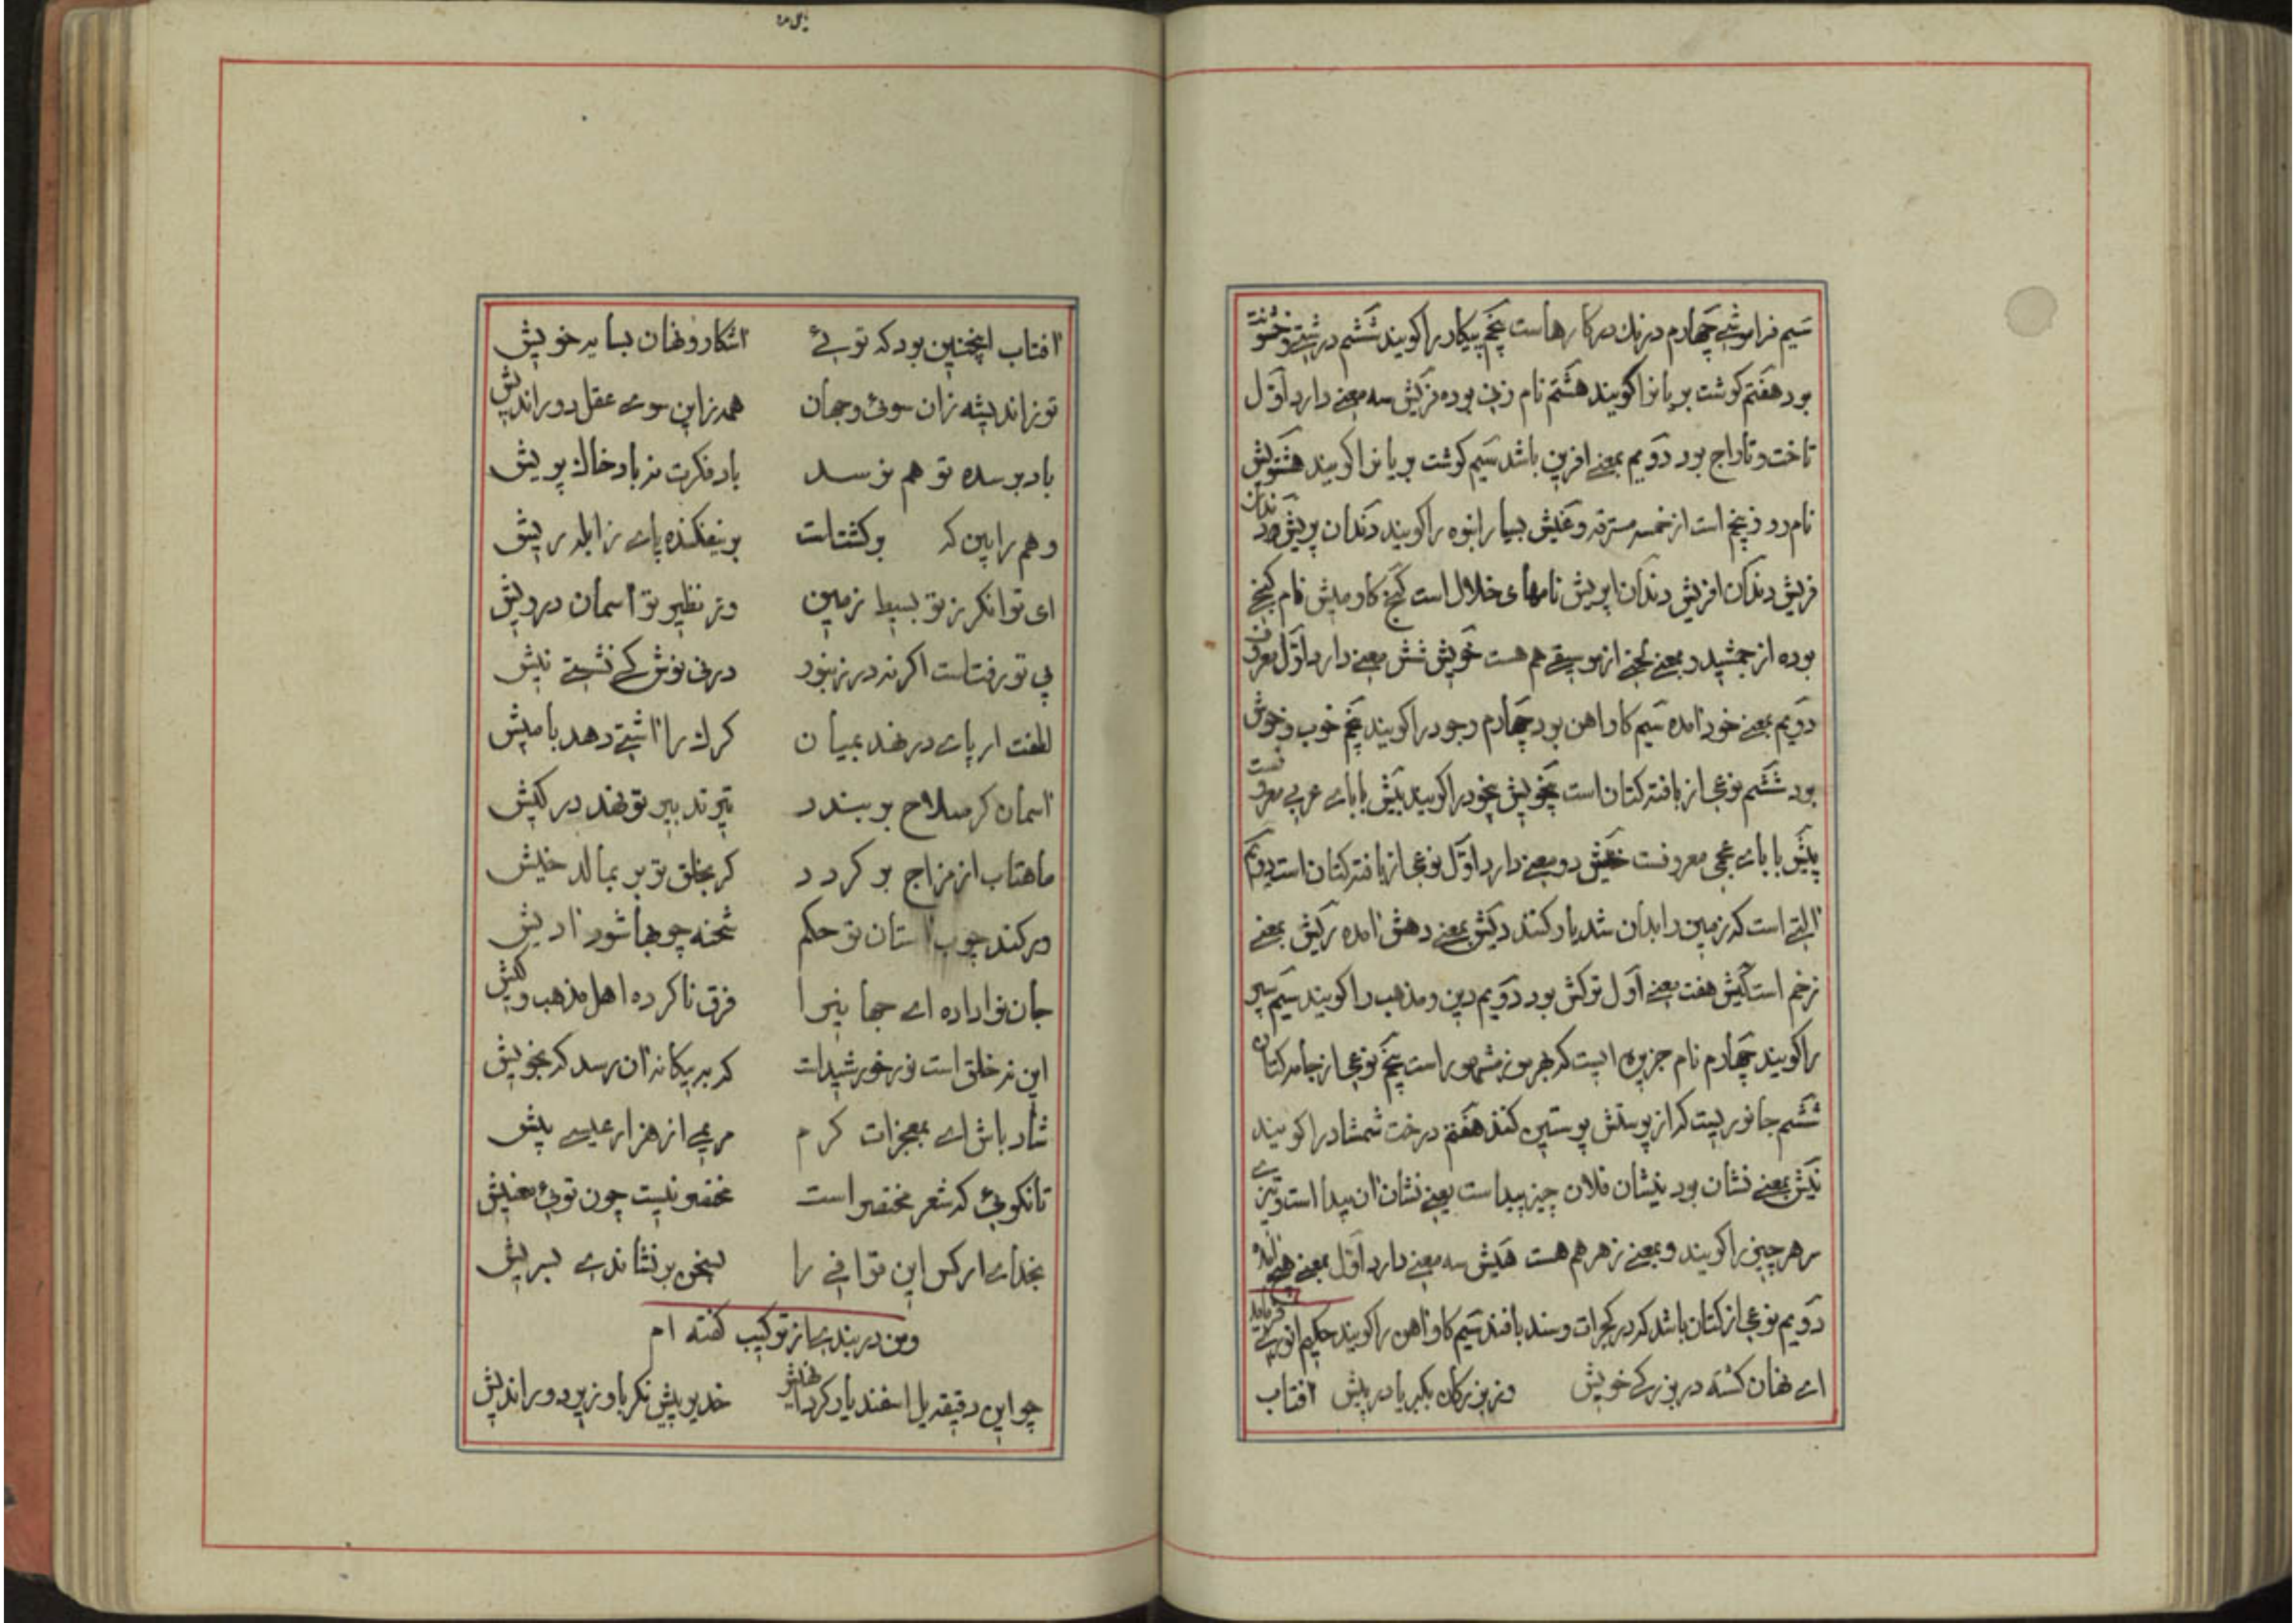 سیم فراموشے چهارم درنك در کارهاست پنجم پیکار را کویند ششم درشتے و خشونت
بود هفتم کوشت بریانرا کویند هشتم نام زنے بوده فریش سه معنے دارد اوّل
تاخت و تاراج بود دویم بمعنے افرین باشد سیم کوشت بریانرا کویند هشتویش
نام روز پنجم است از خمسه مسترقه و غیش بسیار انبوه را کویند دندان پریش دندان
فریش دندان افریش دندان اپریش نامهای خلال است کنج کاومیش نام کنجے
بوده از جمشید و بمعنے لحنے از موسیقے هم هست خویش شش معنے دارد اوّل معروف
دویم بمعنے خود امده سیم کاواهن بود چهارم وجود را کویند پنجم خوب و خوش
بود ششم نوعی از بافته کتان است بخویش بخود را کویند بیش با باے عربی معروفست
پیش با باے عجمی معروفست خیش دو معنے دارد اوّل نوعی از بافته کتان است دویم
التے است که زمین را بدان شدیار کنند دیش بمعنے دهش امده ریش بمعنے
زخم است کیش هفت معنے اول ترکش بود دویم دین و مذهب را کویند سیم پر
را کویند چهارم نام جزیره ایست که بهرموز مشهور است پنجم نوعی از جامه کتان
ششم جانوریست که از پوستش پوستین کنند هفتم درخت شمشاد را کویند
نیش بمعنے نشان بود بنیشان فلان چیز پیداست یعنے نشان ان پیدا است و تیزے
سر هر چیز را کویند و بمعنے زهر هم هست هیش سه معنے دارد اوّل بمعنے هیچ
دویم نوعی از کتان باشد که در کجرات و سند بافند سیم کاواهن را کویند حکیم انوری فرماید
اے نهان کشته در بزرکے خویش وز بزرکان بکبریا در پیش افتاب
افتاب اینچنین بود که توئے اشکار و نهان بسایه خویش
تو ز اندیشه زان سوئ و جهان همه زاین سوے عقل دوراندیش
باد بر سده تو هم نرسد باد فکرت نه باد خاك پریش
وهم را بین که برکشتست بر نیفکنده پاے ز ابله ریش
ای توانکر ز تو بسیط زمین وز نظیر تو اسمان درویش
بی تو رفتست اکر نه در زنبور در پی نوش کے نشستے نیش
لطفت ار پاے در نهد بمیان کرك را اشتے دهد با میش
اسمان کر سلاح بر بندد تیر تدبیر تو نهد در کیش
ماهتاب از مزاج بر کردد کر بخلق تو بر بمالد خیش
ور کند چوب استان تو حکم شحنه چوبها شود ادیش
جان نو داده اے جهانیرا فرق ناکرده اهل مذهب و کیش
این نه خلق است نور خورشیدست که به بیکانه ان رسد که بخویش
شاد باش اے بمعجزات کرم مریمے از هزار عیسے پیش
تا نکوئی که شعر مختصر است مختصر نیست چون توئی معنیش
بخداے ار کس این قوافے را بسخن بر نشاندے سریش
ومن در بندے از ترکیب کفته ام
چو این دقیقه یل اسفندیار کرد خدیو پیش نکر باوزیر دوراندیش